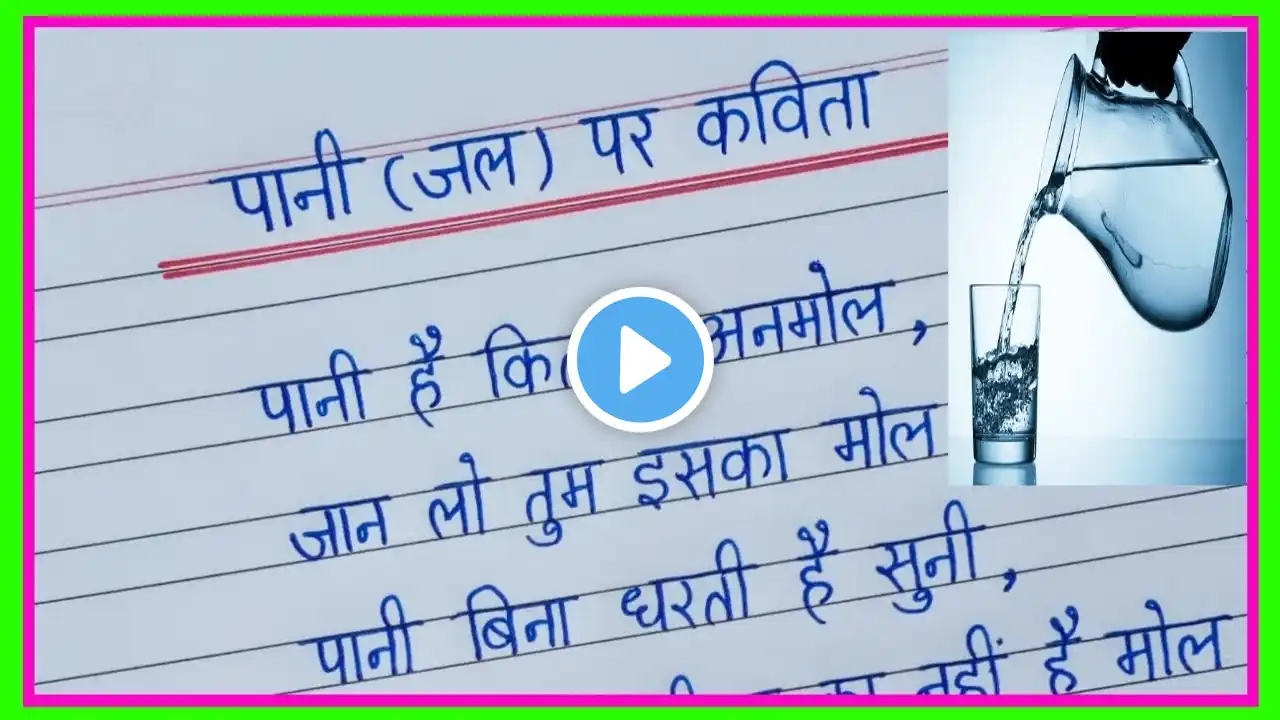 पानी (जल) पर कविता
पानी है अनमोल,
जान लो तुम इसका मोल
पानी बिना धरती है सुनी,
नहीं है मोल